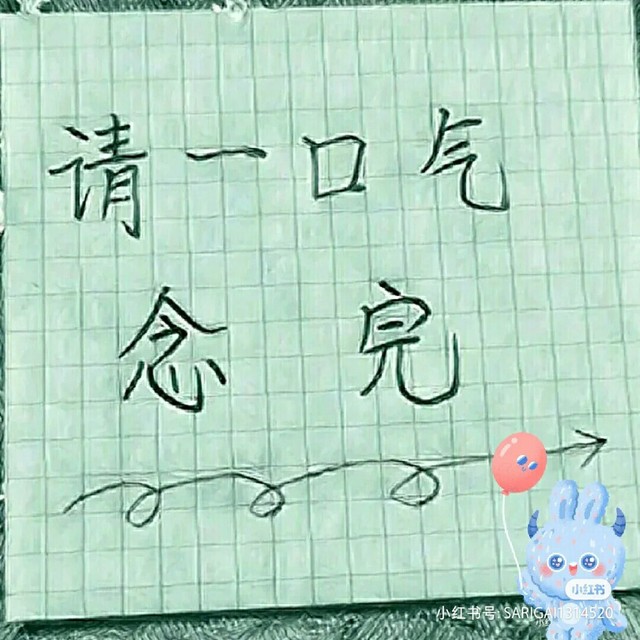 请一口气
念完
小红书
小红书号: SARIGAI1314520